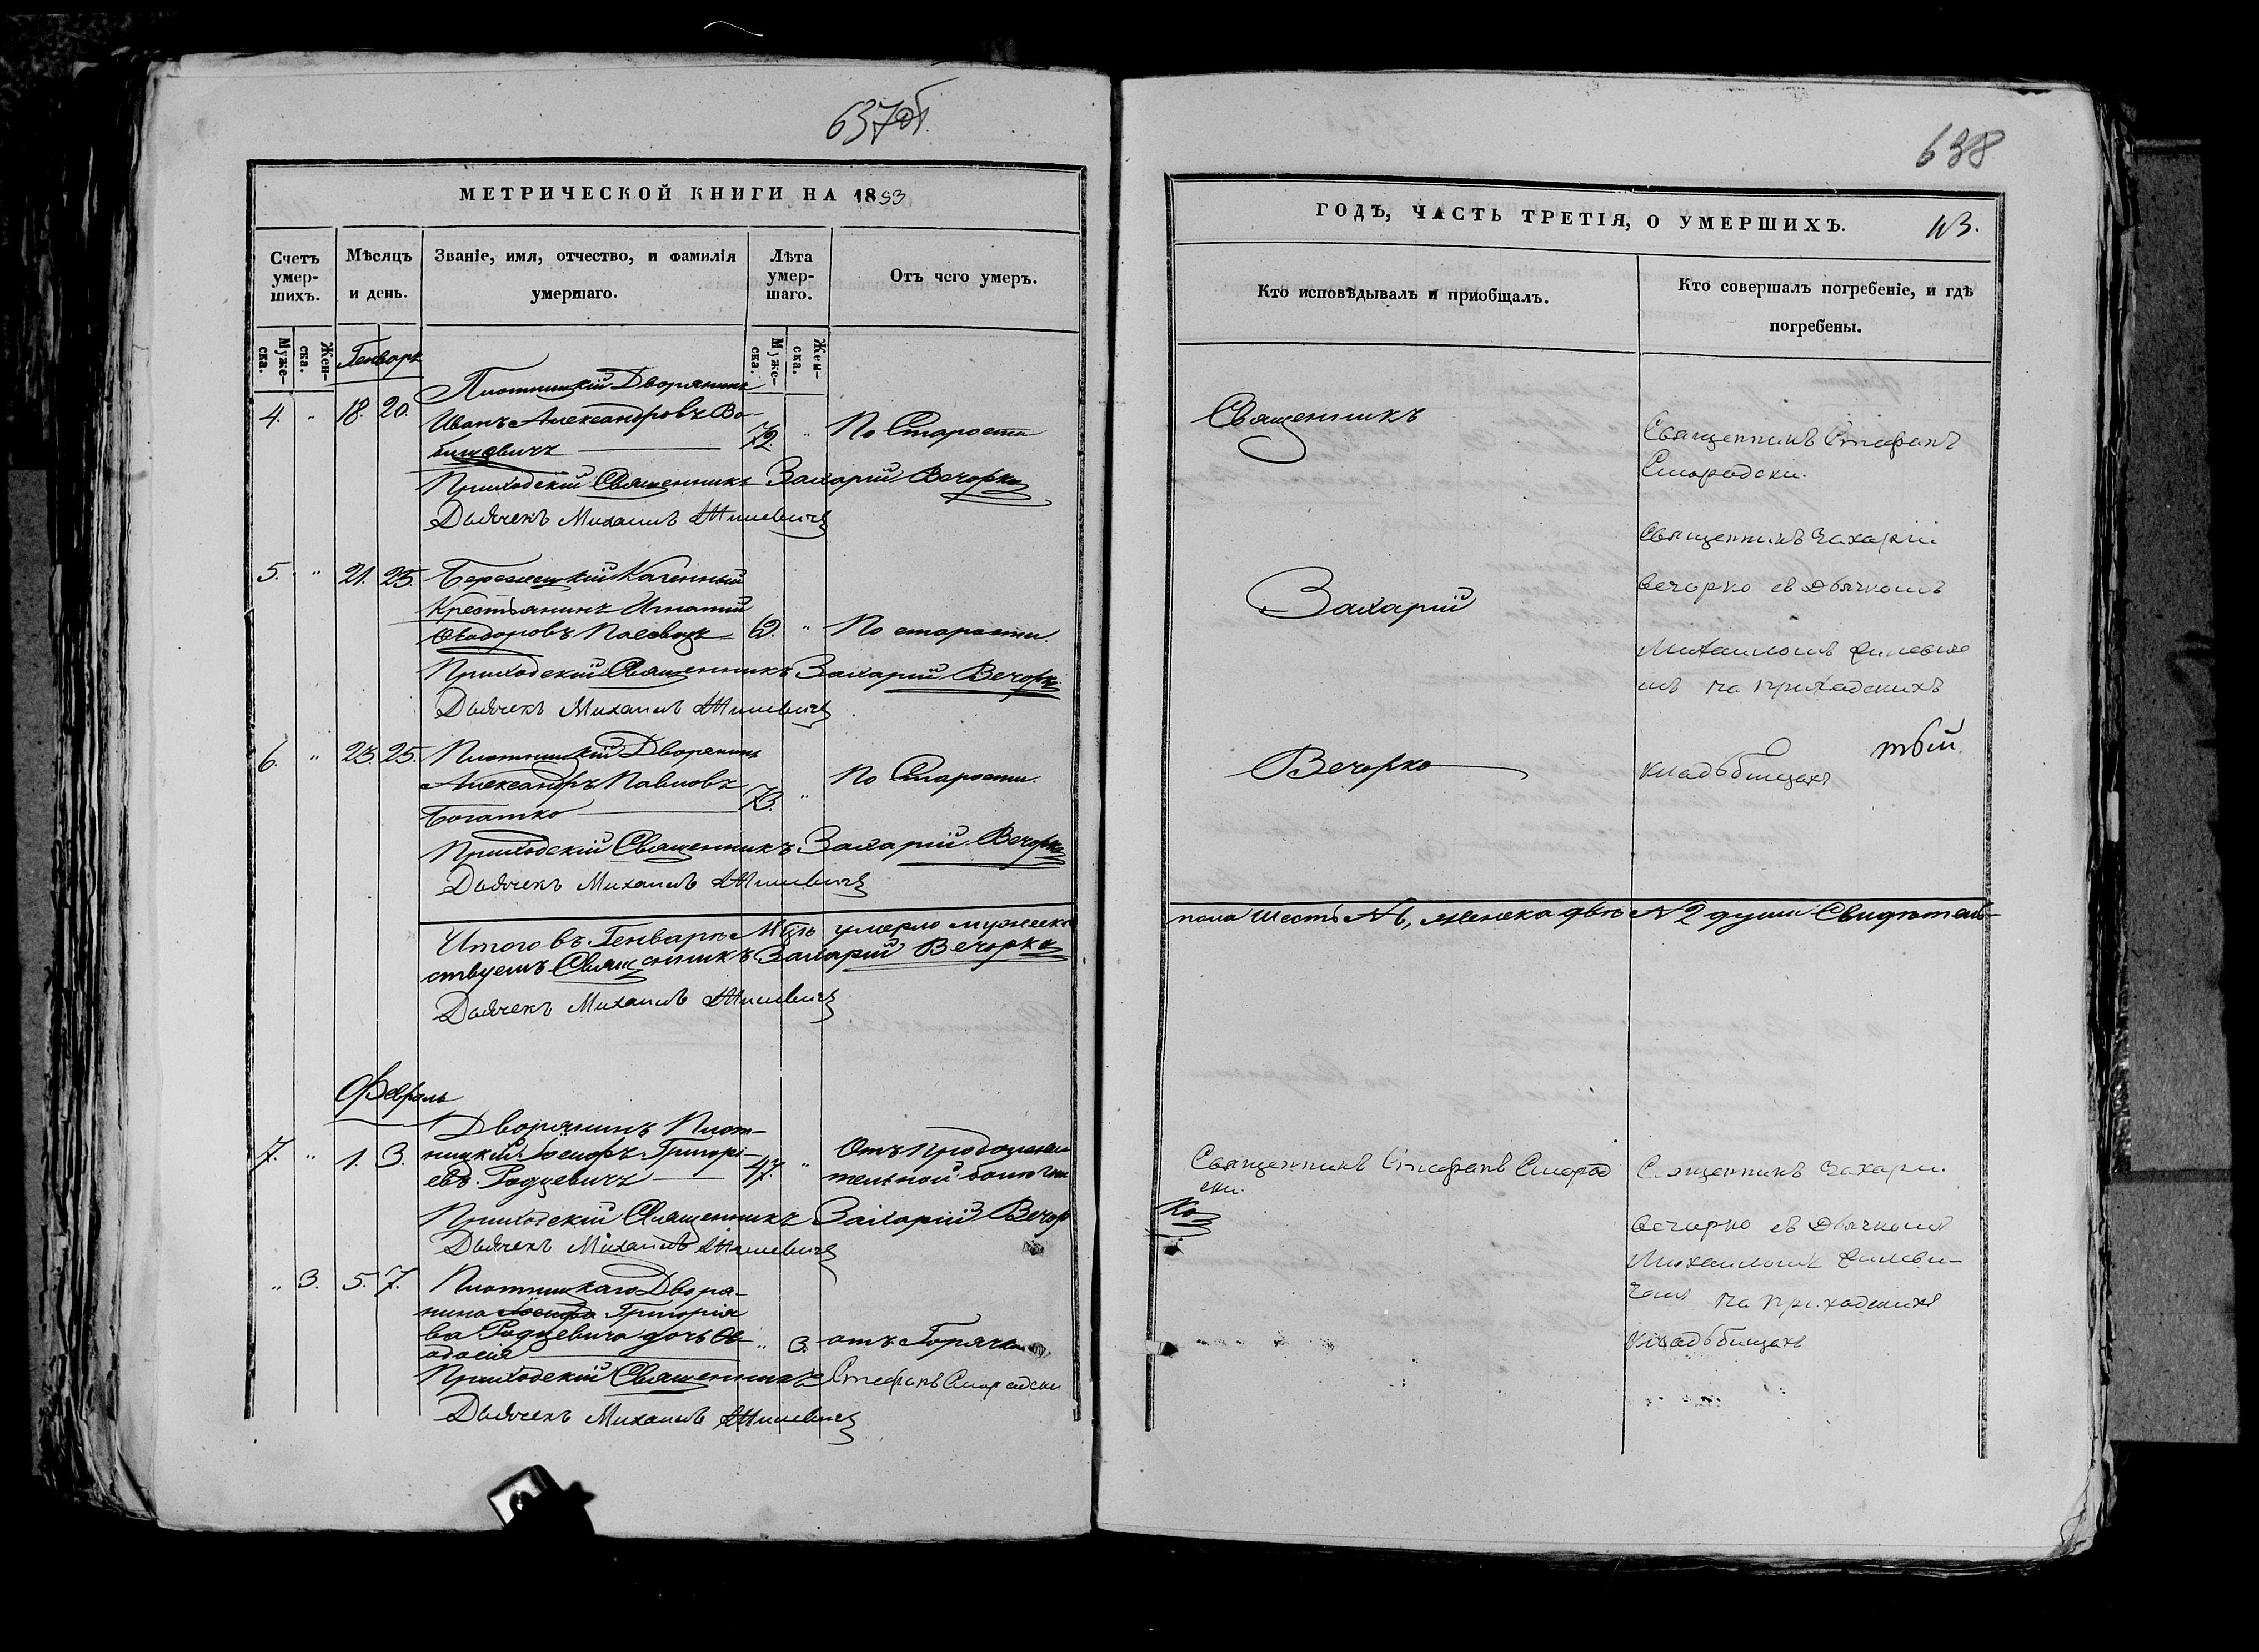 637об.
МЕТРИЧЕСКОЙ КНИГИ НА 1853
Счетъ умер- шихъ.
Мѣсяцъ и день.
Званіе, имя, отчество, и фамилія умершаго.
Лѣта умер- шаго.
Отъ чего умеръ.
Муже- ска.
Жен- ска.
Муже- ска.
Жен- ска.
Генварь
Плотницкій Дворянинъ
4. " 18. 20. Иванъ Александровъ Бо-
72. " По Старости
Приходскій Священникъ Захарій Вечорко
Дьячекъ Михаилъ
5. " 21. 25. Бережецкій Казенный
Крестьянинъ Игнатій
Ѳеодоровъ 62. " По старости.
Приходскій Священникъ Захарій Вечорко
Дьячекъ Михаилъ
6. " 23. 25. Плотницкій Дворянинъ
Александръ Павловъ По Старости.
Богатко 73. "
Приходскій Священникъ Захарій Вечорко
Дьячекъ Михаилъ
Итого въ Генварѣ Мцѣ умерло мужеска
ствуемъ Священникъ Захарій Вечорко
Дьячекъ Михаилъ
Февраль
Дворянинъ Плот-
7. " 1. 3. ницкій Іосифъ Григорі- 47. " Отъ продолжи
евъ Родзевичъ тельной болезни
Приходскій Священникъ Захарій Вечор
Дьячекъ Михаилъ
" 3. 5. 7. Плотницкаго Дворя-
нина Іосифа Григорія
ва Родзевича дочь Ѳе
одосія " 3. отъ Горячки
Приходскій Священникъ Стефанъ Смородски
Дьячекъ Михаилъ
638
ГОДЪ, ЧАСТЬ ТРЕТІЯ, О УМЕРШИХЪ.
113.
Кто исповѣдывалъ и пріобщалъ.
Кто совершалъ погребеніе, и гдѣ погребены.
Священникъ
Захарій
Вечорко
Священникъ Стефанъ
Смородски.
Священникъ Захарій
Вечорко съ Дьячкомъ
Михаиломъ
на приходскихъ
кладбищахъ
пола шесть N6, женска двѣ N2 души Свидѣтель-
Священникъ Стефанъ Смород
ски.
ко
Священникъ Захари.
Вечорко съ Дьячкомъ
Михаиломъ
на приходскихъ
кладбищахъ